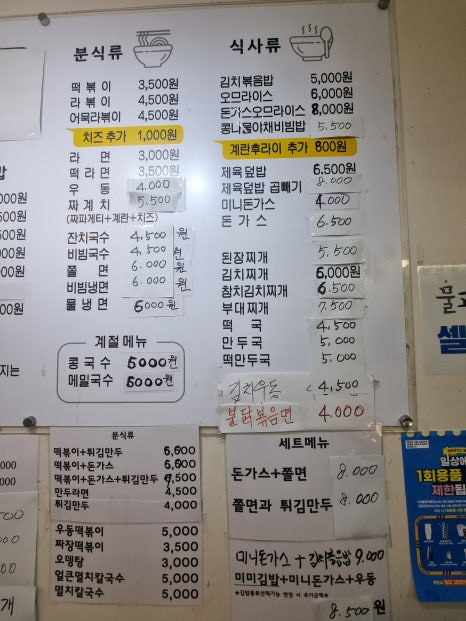 분식류
떡볶이 3,500원
라볶이 4,500원
어묵라볶이 4,500원
치즈 추가 1,000원
라면 3,000원
떡라면 3,500원
우동 4.000
짜계치 5.500
(짜파게티+계란+치즈)
잔치국수 4,500원
비빔국수 4,500원
쫄면 6.000원
비빔냉면 6.000
물냉면 6000원
계절 메뉴
콩국수 5000원
메밀국수 5000원
식사류
김치볶음밥 5,000원
오므라이스 6,000원
돈가스오므라이스 8,000원
콩나물야채비빔밥 5,500
계란후라이 추가 800원
제육덮밥 6.500원
제육덮밥 곱빼기 8.000
미니돈가스 4.000
돈가스 6.500
된장찌개 5.500
김치찌개 6,000원
참치김치찌개 6,500
부대찌개 7,500
떡국 4,500
만두국 5,000
떡만두국 5.000
김치우동 4,500
불닭볶음면 4.000
분식류
떡볶이+튀김만두 6,600
떡볶이+돈가스 6,600
떡볶이+돈가스+튀김만두 7,500
만두라면 4,500
튀김만두 4,000
우동떡볶이 5,000
짜장떡볶이 3,500
오뎅탕 3,000
얼큰멸치칼국수 5,000
멸치칼국수 5,000
세트메뉴
돈가스+쫄면 8.000
쫄면과 튀김만두 8.000
미니돈가스 + 김치볶음밥 9.000
미미김밥+미니돈가스+우동
★김밥종류선택가능 변경 시 추가금액★
8.500원
물
셀
일상에
1회용품
제한됩
밥
지는
개